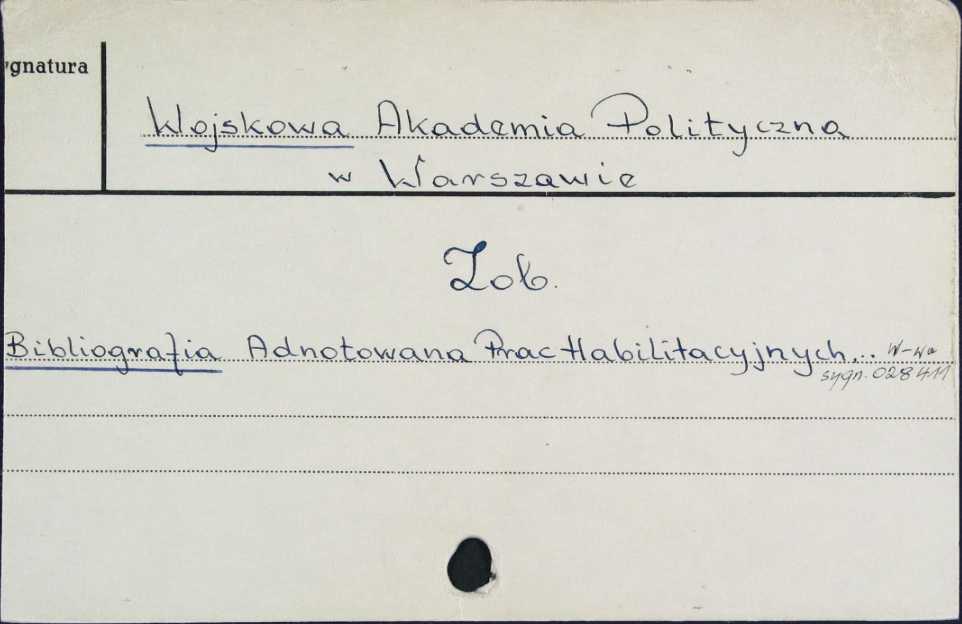 ygnatura
Wojskowa Akademia Polityczna
w Warszawie
Zob.
Bibliografia Adnotowana Prac Habilitacyjnych... W-wa
sygn. 028411